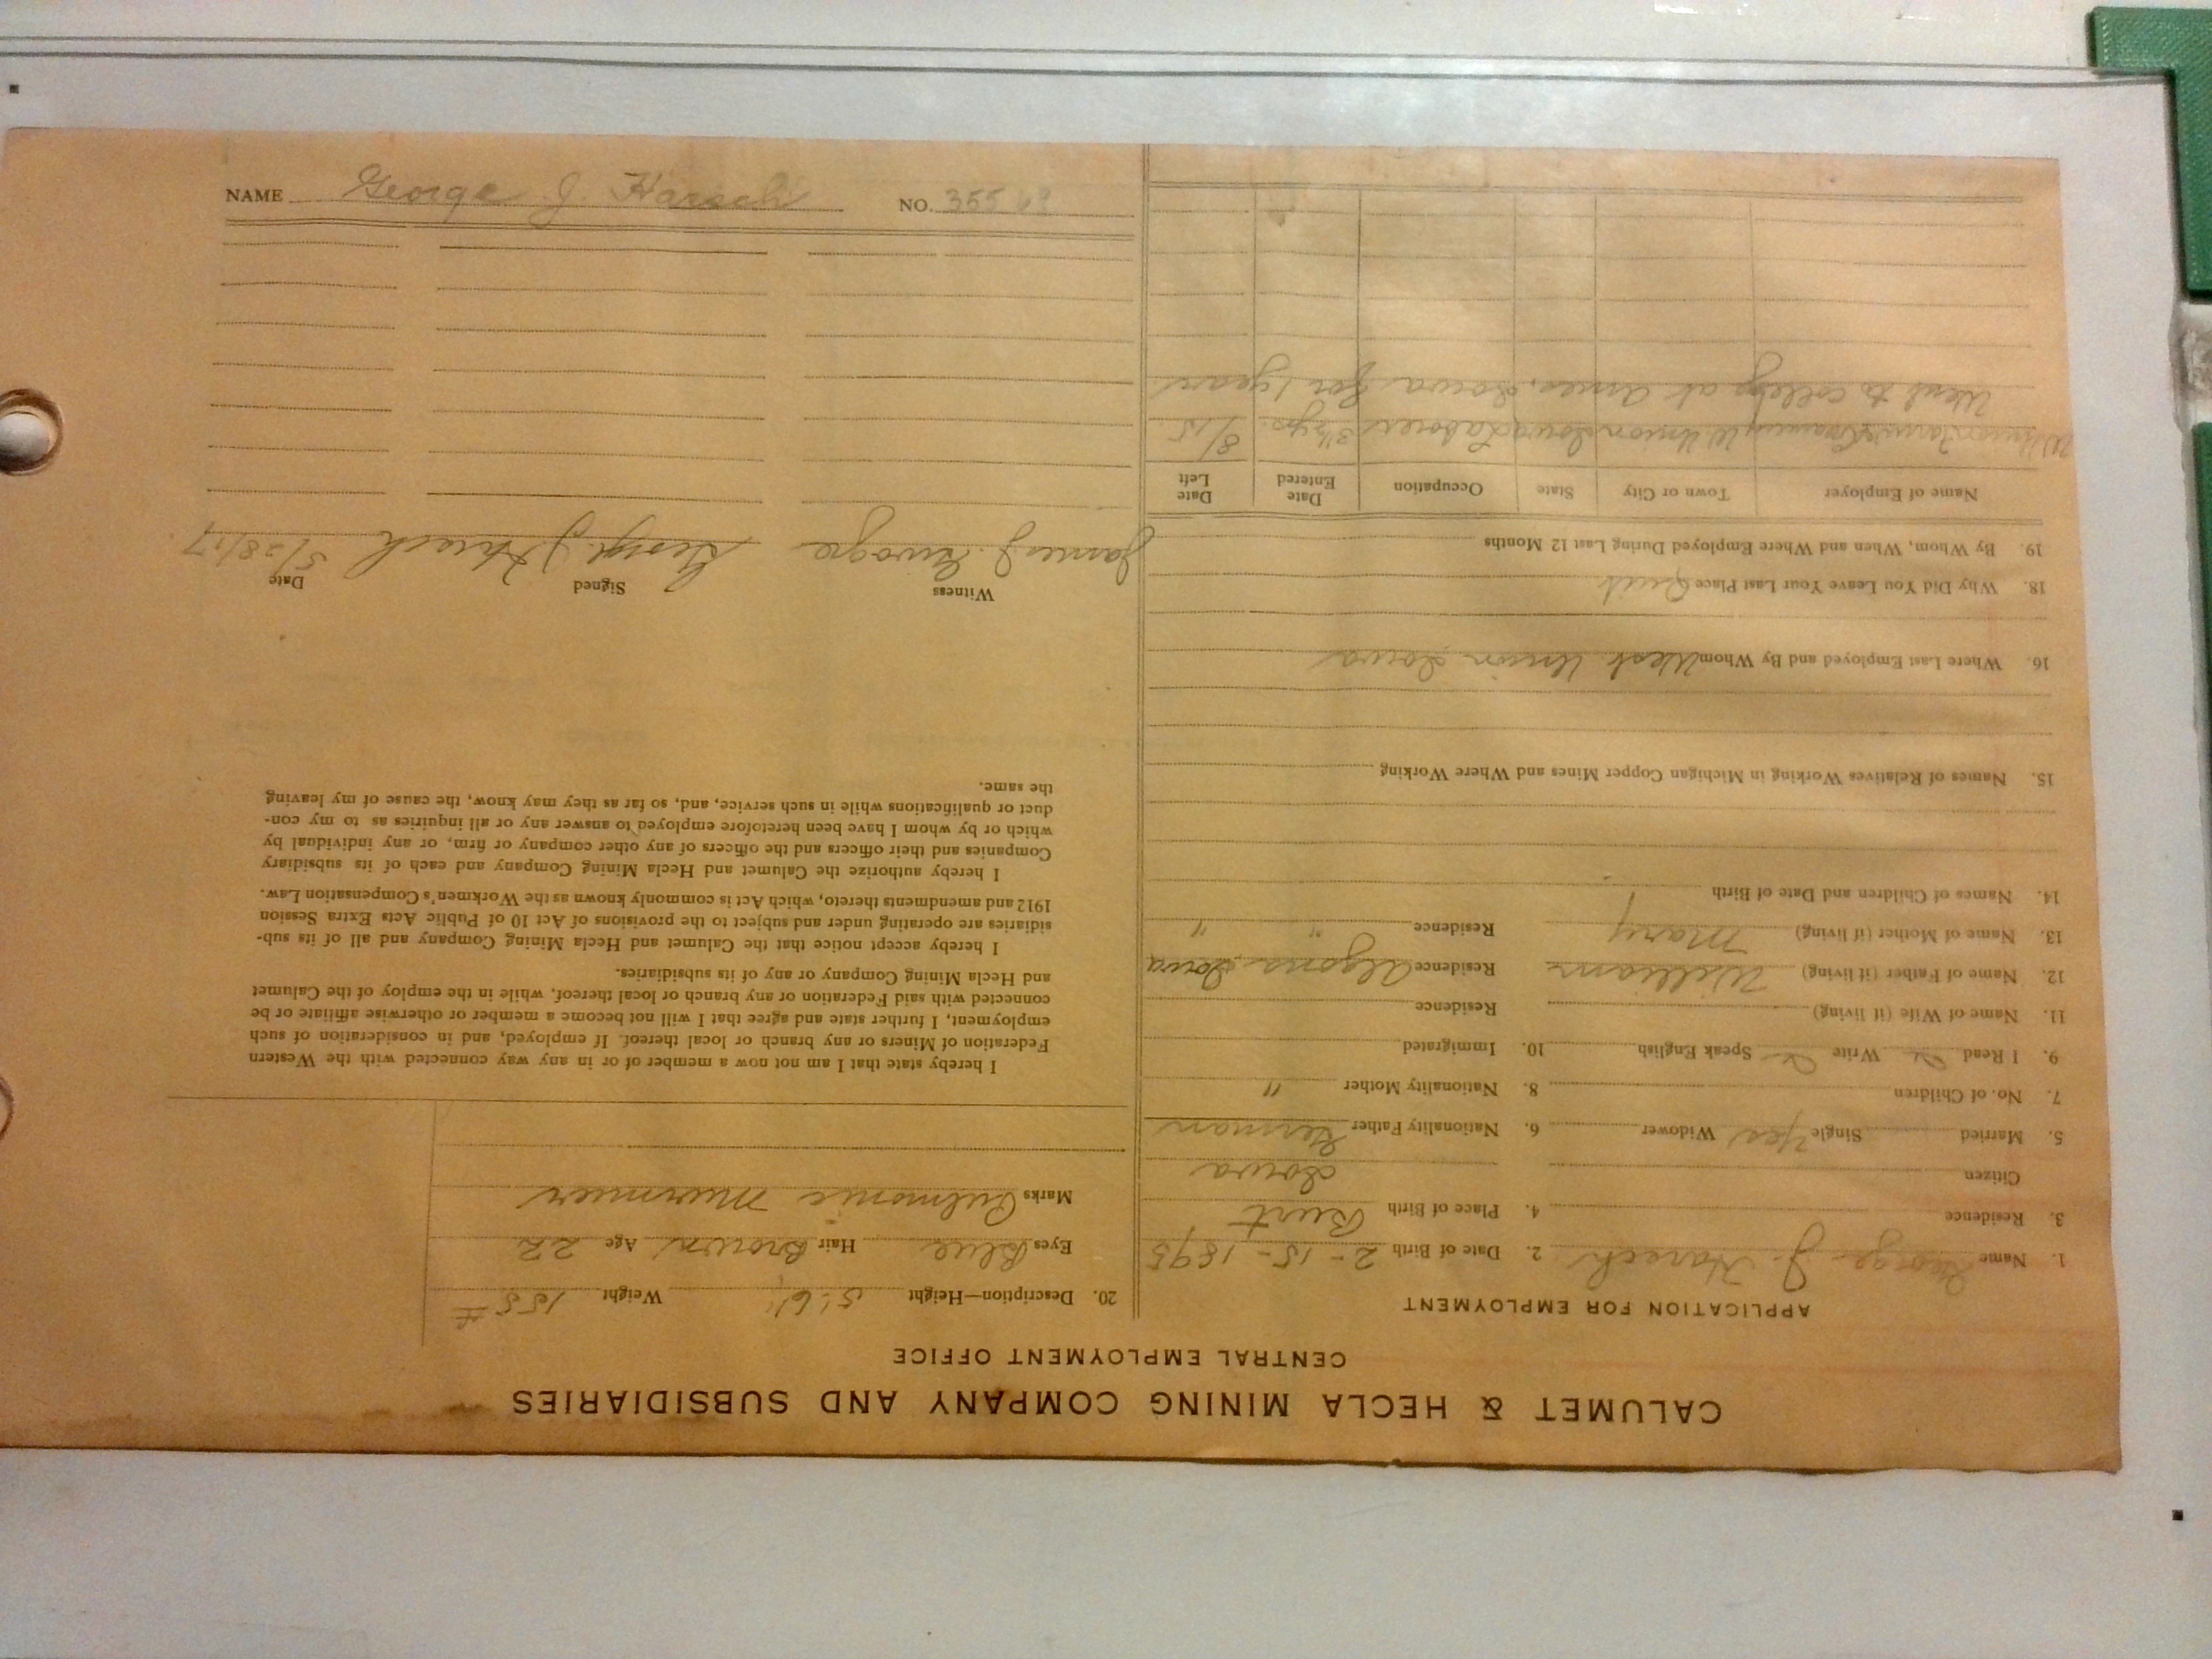 CALUMET & HECLA MINING COMPANY AND SUBSIDIARIES
CENTRAL EMPLOYMENT OFFICE
APPLICATION FOR EMPLOYMENT
1. Name George J. Harsch 2. Date of Birth 2-15-1895
3. Residence 4. Place of Birth Burt
Citizen Iowa
5. Married Single Yes Widower 6. Nationality Father German
7. No. of Children 8. Nationality Mother "
9. I Read Write Speak English 10. Immigrated
11. Name of Wife (if living) Residence
12. Name of Father (if living) William Residence Algona, Iowa
13. Name of Mother (if living) Mary Residence " "
14. Names of Children and Date of Birth
15. Names of Relatives Working in Michigan Copper Mines and Where Working
16. Where Last Employed and By Whom West Union Iowa
18. Why Did You Leave Your Last Place Quit
19. By Whom, When and Where Employed During Last 12 Months
Name of Employer Town or City State Occupation Date Entered Date Left
W. Union Iowa Laborer 3½ yrs. 8/15
Went to college at Ames, Iowa for 1 year
20. Description—Height 5' 6" Weight 155 #
Eyes Blue Hair Brown Age 22
Marks Pulmonic Murmur
I hereby state that I am not now a member of or in any way connected with the Western
Federation of Miners or any branch or local thereof. If employed, and in consideration of such
employment, I further state and agree that I will not become a member or otherwise affiliate or be
connected with said Federation or any branch or local thereof, while in the employ of the Calumet
and Hecla Mining Company or any of its subsidiaries.
I hereby accept notice that the Calumet and Hecla Mining Company and all of its sub-
sidiaries are operating under and subject to the provisions of Act 10 of Public Acts Extra Session
1912 and amendments thereto, which Act is commonly known as the Workmen's Compensation Law.
I hereby authorize the Calumet and Hecla Mining Company and each of its subsidiary
Companies and their officers and the officers of any other company or firm, or any individual by
which or by whom I have been heretofore employed to answer any or all inquiries as to my con-
duct or qualifications while in such service, and, so far as they may know, the cause of my leaving
the same.
Witness Signed Date
James J. George J Harsch 5/28/17
NAME George J. Harsch NO. 355